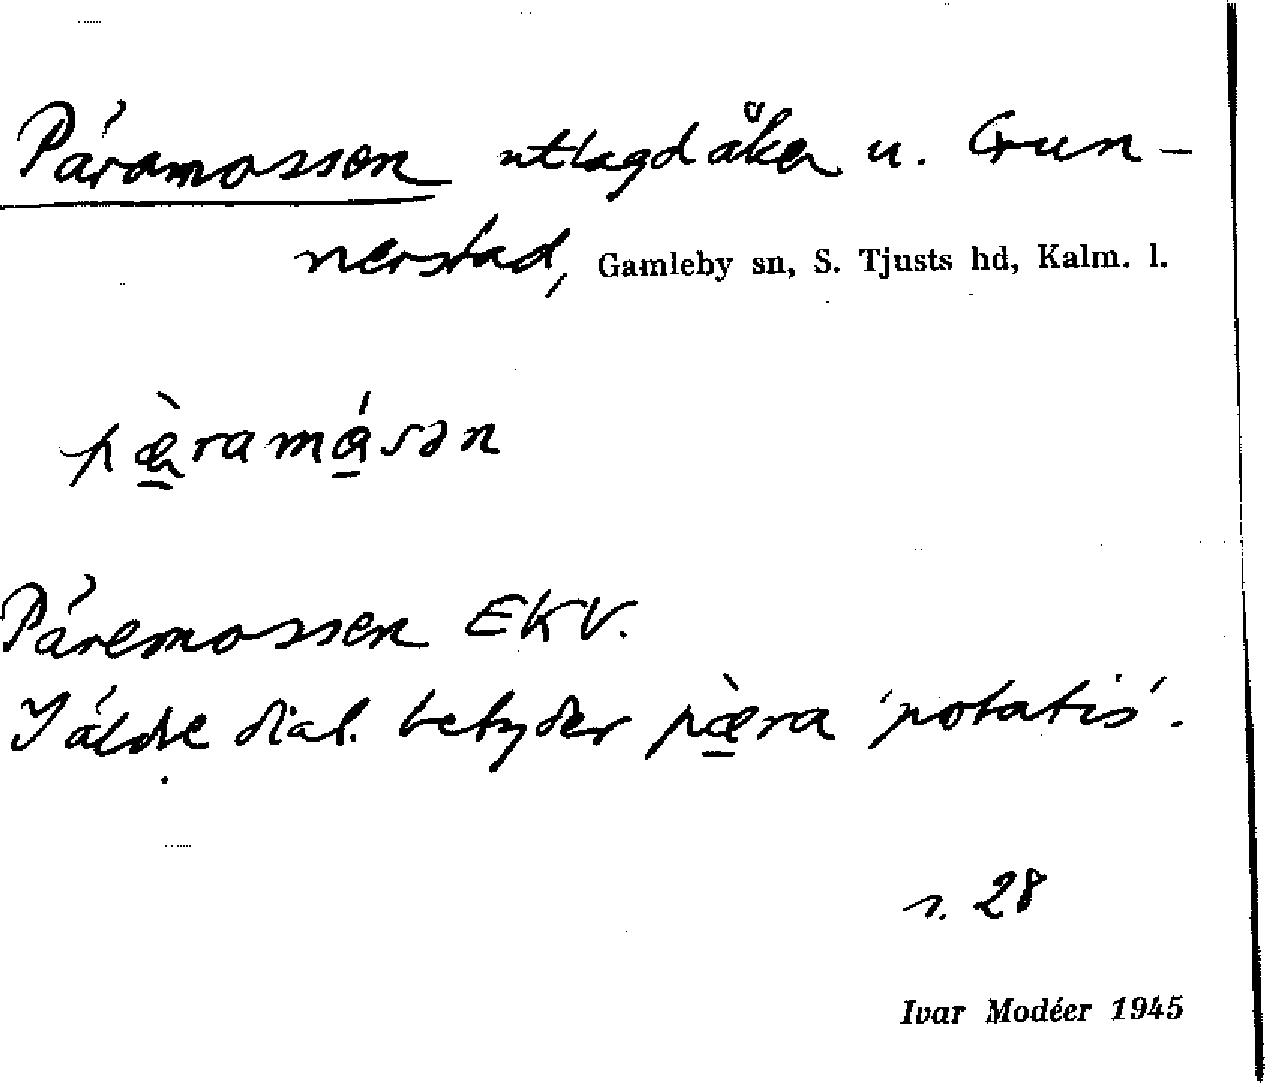 Päramossen utlagd åker u. Gun-
nerstad, Gamleby sn, S. Tjusts hd, Kalm. l.
pæ̀ramɑ́sən
Päremossen EKV.
I äldre dial. betyder pæ̀ra 'potatis'.
s. 28
Ivar Modéer 1945